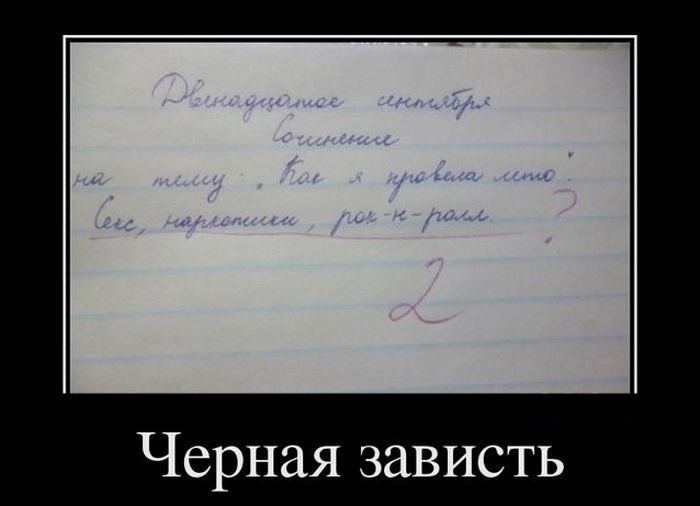 Двенадцатое сентября
Сочинение
на тему: „Как я провела лето".
Секс, наркотики, рок-н-ролл. ?
2
Черная зависть